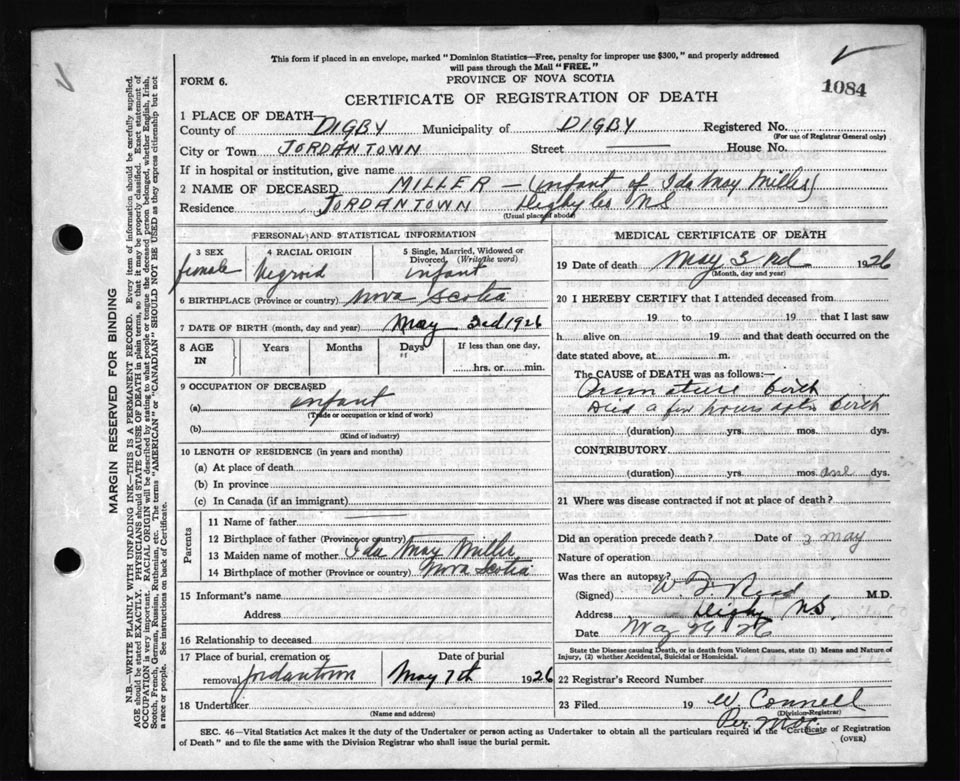 This form if placed in an envelope, marked "Dominion Statistics—Free, penalty for improper use $300," and properly addressed
will pass through the Mail "FREE."
FORM 6.
PROVINCE OF NOVA SCOTIA
1084
CERTIFICATE OF REGISTRATION OF DEATH
1 PLACE OF DEATH—
County of DIGBY Municipality of DIGBY Registered No.
(For use of Registrar General only)
City or Town JORDANTOWN Street House No.
If in hospital or institution, give name
2 NAME OF DECEASED MILLER — (infant of Ida May Miller)
Residence JORDANTOWN Digby Co NS
(Usual place of abode)
PERSONAL AND STATISTICAL INFORMATION
3 SEX 4 RACIAL ORIGIN 5 Single, Married, Widowed or
Divorced, (Write the word)
female Negroid infant
6 BIRTHPLACE (Province or country) Nova Scotia
7 DATE OF BIRTH (month, day and year) May 3rd 1926
8 AGE
IN
Years Months Days If less than one day,
hrs. or min.
9 OCCUPATION OF DECEASED
(a) infant
(Trade or occupation or kind of work)
(b)
(Kind of industry)
10 LENGTH OF RESIDENCE (in years and months)
(a) At place of death
(b) In province
(c) In Canada (if an immigrant)
Parents
11 Name of father
12 Birthplace of father (Province or country)
13 Maiden name of mother Ida May Miller
14 Birthplace of mother (Province or country) Nova Scotia
15 Informant's name
Address
16 Relationship to deceased
17 Place of burial, cremation or Date of burial
removal Jordantown May 7th 1926
18 Undertaker
(Name and address)
MEDICAL CERTIFICATE OF DEATH
19 Date of death May 3rd 1926
(Month, day and year)
20 I HEREBY CERTIFY that I attended deceased from
19 to 19 that I last saw
h alive on 19 and that death occurred on the
date stated above, at m.
The CAUSE OF DEATH was as follows:—
Premature birth
Died a few hours after birth
(duration) yrs. mos. dys.
CONTRIBUTORY
(duration) yrs. mos. one dys.
21 Where was disease contracted if not at place of death?
Did an operation precede death? Date of 3 May
Nature of operation
Was there an autopsy?
(Signed) M.D.
Address Digby NS.
Date May 29 26
State the Disease causing Death, or in death from Violent Causes, state (1) Means and Nature of
Injury, (2) whether Accidental, Suicidal or Homicidal.
22 Registrar's Record Number
23 Filed 19 W. Connell
(Division Registrar)
Per.
SEC. 46—Vital Statistics Act makes it the duty of the Undertaker or person acting as Undertaker to obtain all the particulars required in the "Certificate of Registration
of Death" and to file the same with the Division Registrar who shall issue the burial permit.
(OVER)
MARGIN RESERVED FOR BINDING
N.B.—WRITE PLAINLY WITH UNFADING INK—THIS IS A PERMANENT RECORD. Every item of information should be carefully supplied.
AGE should be stated EXACTLY. PHYSICIANS should STATE CAUSE OF DEATH in plain terms, so that it may be properly classified. Exact statement of
OCCUPATION is very important. RACIAL ORIGIN will be described by stating to what people or tongue the deceased person belonged, whether English, Irish,
Scotch, French, German, Russian, Ruthenian, etc. The terms "AMERICAN" or "CANADIAN" SHOULD NOT BE USED as they express citizenship but not
a race or people. See instructions on back of Certificate.